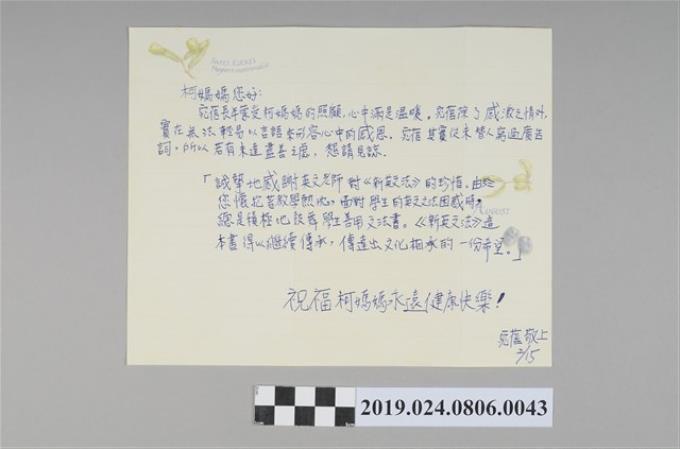 柯媽媽您好：
宛蓓長年蒙受柯媽媽的照顧，心中滿是溫暖。宛蓓除了感激之情外，
實在無法輕易以言語來形容心中的感恩。宛蓓其實從未替人寫過廣告
詞，所以若有未達盡善之處，懇請見諒。
「誠摯地感謝英文老師對《新英文法》的珍惜。由於
您懷抱著教學熱忱，面對學生的英文文法困惑時，
總是積極地鼓舞學生善用文法書。《新英文法》這
AUGUST
本書得以繼續傳承，傳達出文化相承的一份希望。」
祝福柯媽媽永遠健康快樂！
宛蓓敬上
2/15
2019.024.0806.0043